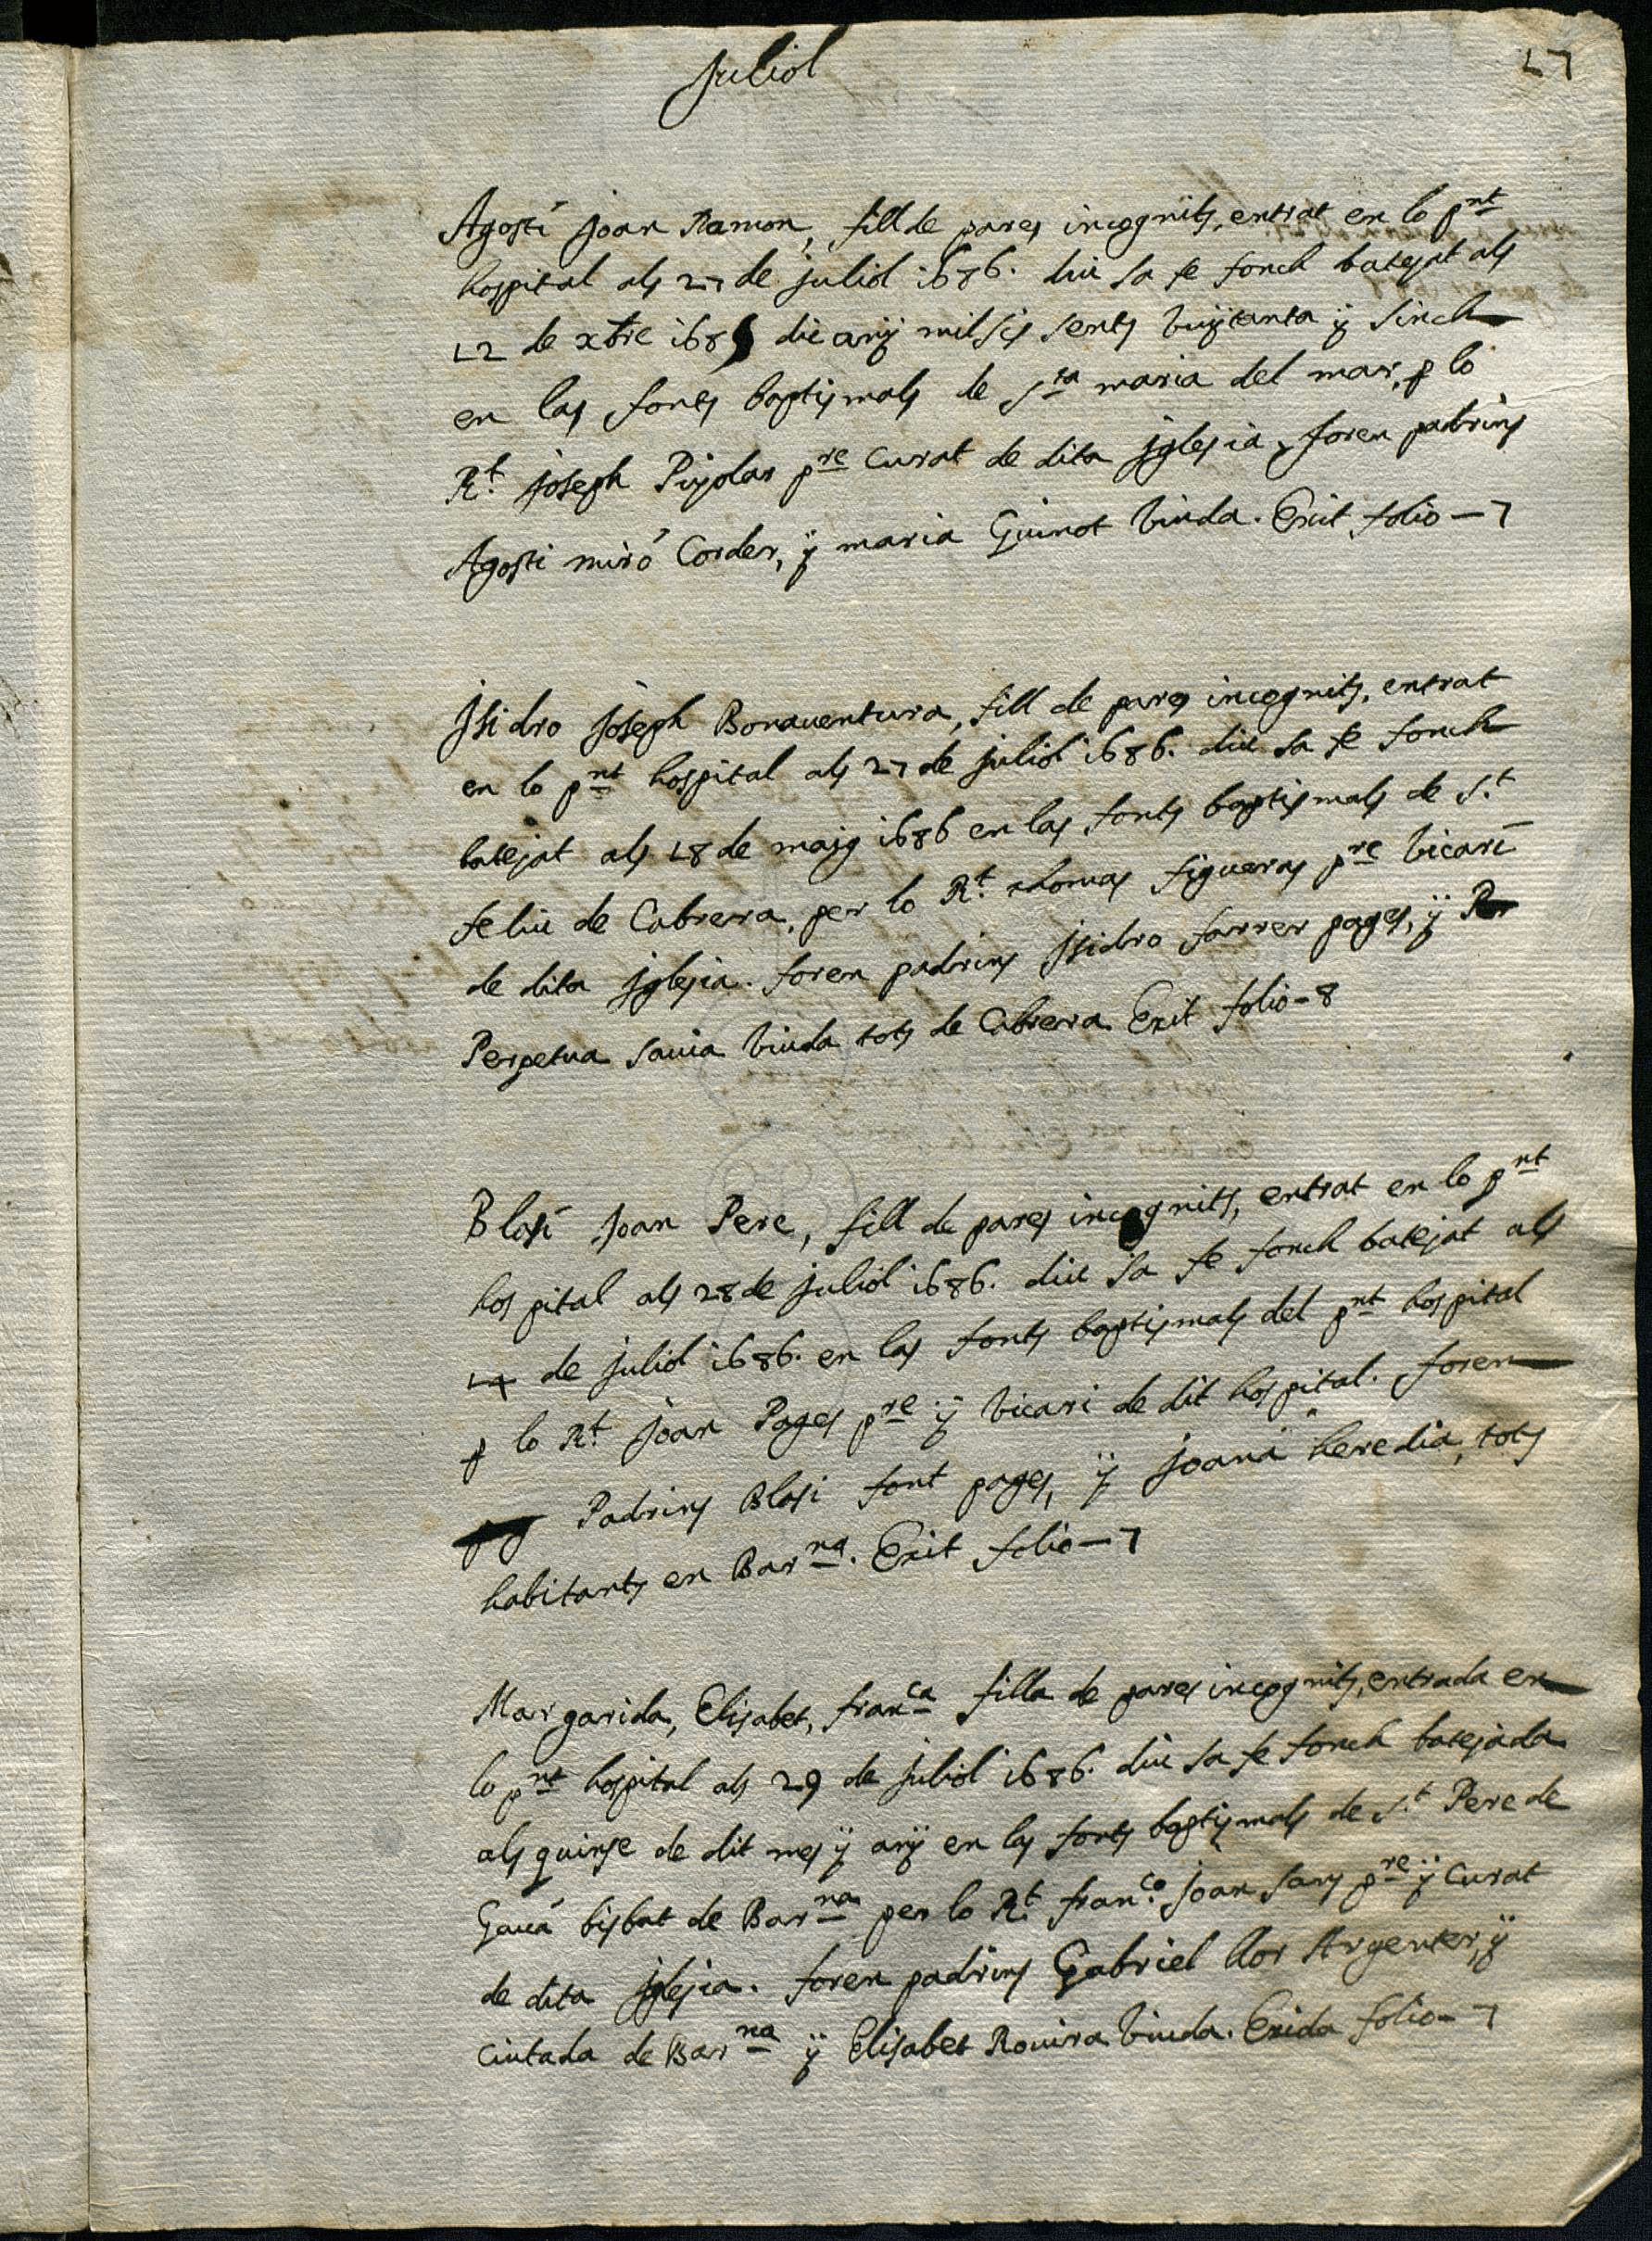 Juliol
17
Agosti Joan Ramon, fill de pares incognits, entrat en lo pnt
hospital als 27 de juliol 1686. diu sa fe fonch batejat als
12 de xbre 1685 dic any mil sis sents vuytanta y sinch
en las fonts baptismals de Sta maria del mar, p lo
Rt. Joseph Pujolar pre Curat de dita Iglesia, foren padrins
Agosti miró Corder, y maria Guinot viuda. Exit folio - 7
Isidro Joseph Bonaventura, fill de pares incognits, entrat
en lo pnt hospital als 27 de juliol 1686. diu sa fe fonch
batejat als 18 de maig 1686 en las fonts baptismals de St.
feliu de Cabrera, per lo Rt. thomas figueras pre vicari
de dita Iglesia. foren padrins Isidro farrer pages, y
Perpetua Savia viuda tots de Cabrera. Exit folio - 8
Blasi Joan Pere, fill de pares incognits, entrat en lo pnt
hospital als 28 de juliol 1686. diu sa fe fonch batejat als
14 de juliol 1686. en las fonts baptismals del pnt hospital
p lo Rt. Joan Pages pre y vicari de dit hospital. foren
Padrins Blasi font pages, y Joana heredia, tots
habitants en Barna. Exit folio - 7
Margarida, Elisabet, franca filla de pares incognits, entrada en
lo pnt hospital als 29 de juliol 1686. diu sa fe fonch batejada
als quinse de dit mes y any en las fonts baptismals de St. Pere de
Gavá bisbat de Barna per lo Rt. franco. Joan Sans pre y Curat
de dita Iglesia. foren padrins Gabriel llor Argenter, y
Ciutada de Barna y Elisabet Rovira viuda. Exida folio - 7